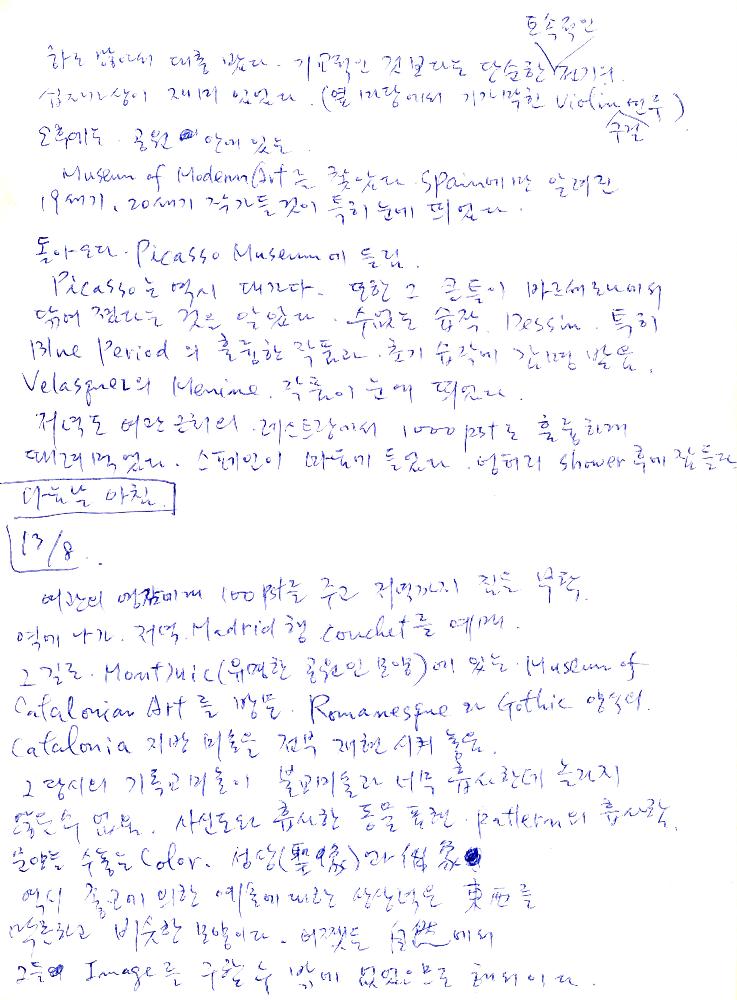 토속적인
하도 많아서 대충 봤다. 기교적인 것보다는 단순한 전기의
십자가상이 재미 있었다. (옆 마당에서 기가막힌 Violin 연주)
구걸
오후에는 공원 안에 있는
Museum of Modern Art를 찾았다. Spain에만 알려진
19세기, 20세기 작가들 것이 특히 눈에 띄었다.
돌아오다. Picasso Museum에 들림.
Picasso는 역시 대가다. 또한 그 큰 틀이 바르세로나에서
닦여졌다는 것을 알았다. 수없는 습작, Dessin. 특히
Blue Period의 훌륭한 작품과 초기 습작에 감명 받음.
Velasquez의 Menine. 작품이 눈에 띄었다.
저녁도 여관 근처의 레스트랑에서 1000 pst로 훌륭하게
때려먹었다. 스페인이 마음에 들었다. 엉터리 shower 후에 잠들다
다음날 아침.
13/8
여관의 영감에게 100 pst를 주고 저녁까지 짐을 부탁.
역에 나가 저녁 Madrid행 couchet를 예매.
그 길로 Montjuic(유명한 공원인 모양)에 있는 Museum of
Catalonian Art를 방문. Romanesque와 Gothic 양식의
Catalonia 지방 미술을 전부 재현시켜 놓음.
그 당시의 기독교미술이 불교미술과 너무 흡사한데 놀라지
않을 수 없음. 사신도와 흡사한 동물 표현. pattern의 흡사함.
color. 성상(聖像)과 佛象
역시 종교에 의한 예술에 대한 상상력은 東西를
막론하고 비슷한 모양이다. 어쨌든 自然에서
그들의 Image를 구할 수 밖에 없었으므로 해서이다.